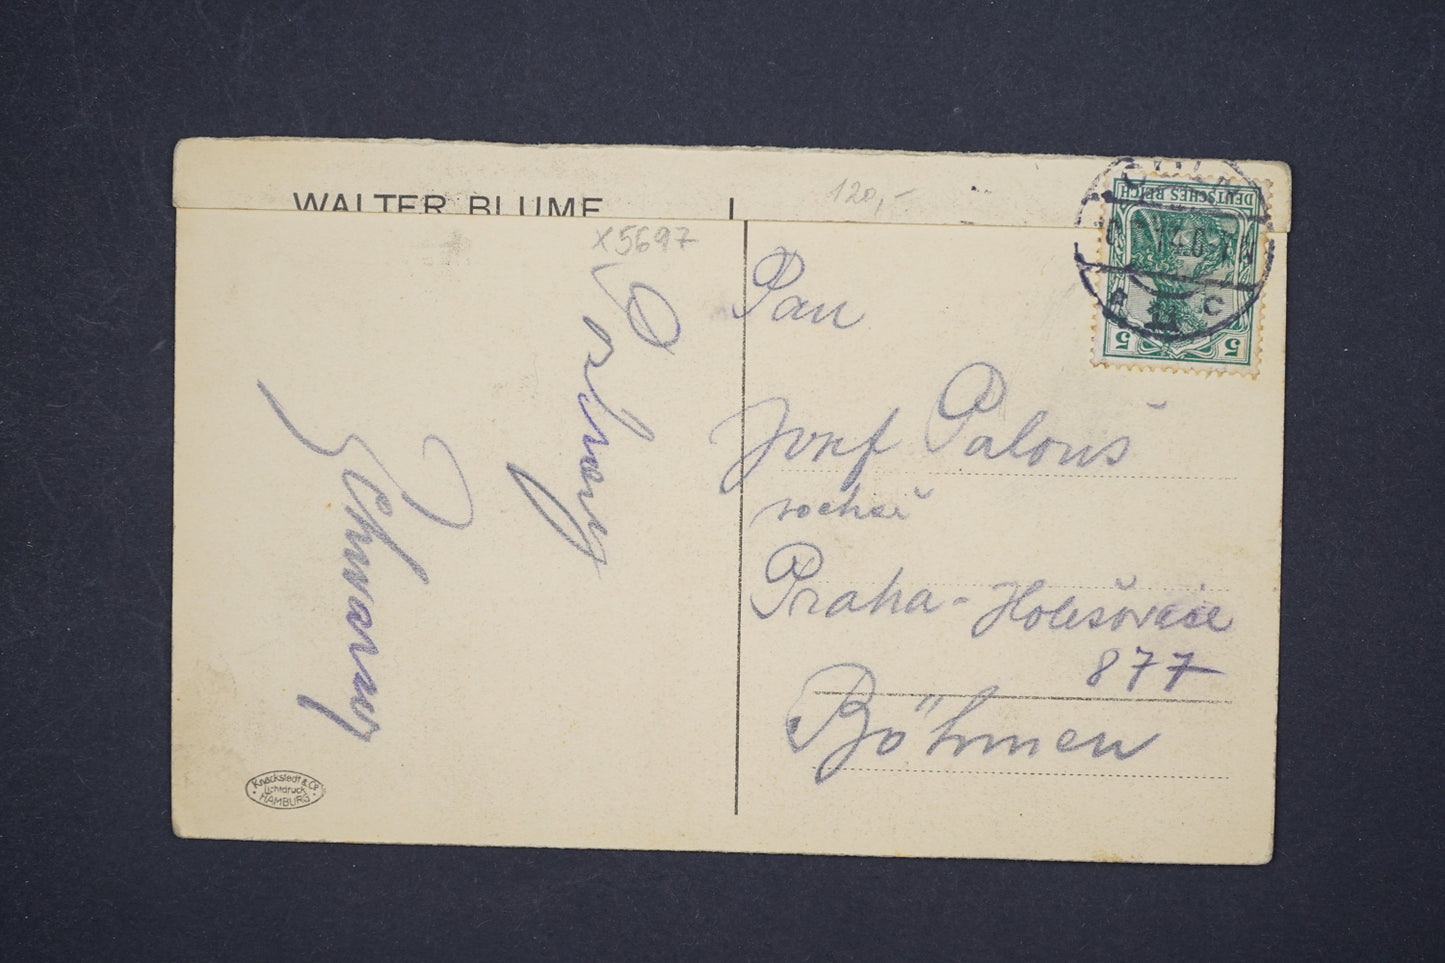 WALTER BLUME
120,-
X5697
Pozdrav
Pan
Josef Palouš
sochař
Praha - Holešovice
877
Böhmen
DEUTSCHES REICH
5 5
C
Knackstedt & Co.
Lichtdruck
HAMBURG